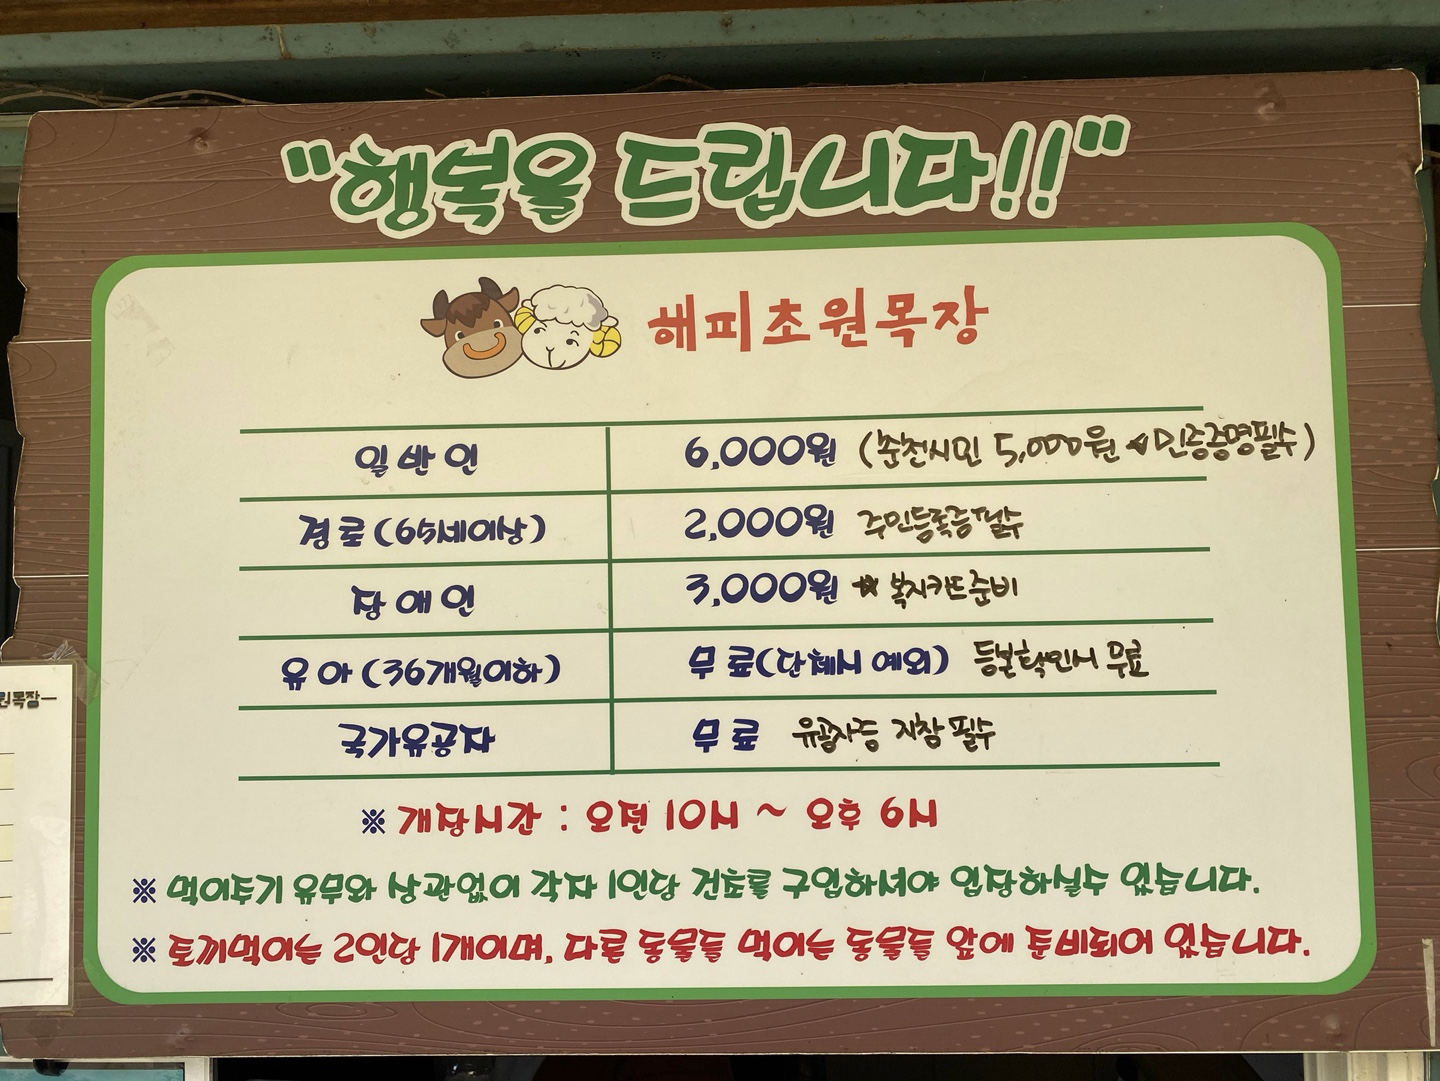 "행복을 드립니다!!"
해피초원목장
일반인 6,000원 (춘천시민 5,000원 ★민증증명필수)
경로(65세이상) 2,000원 주민등록증필수
장애인 3,000원 ★ 복지카드준비
유아(36개월이하) 무료(단체시 예외) 등본확인시 무료
국가유공자 무료 유공자증 지참 필수
※ 개장시간 : 오전 10시 ~ 오후 6시
※ 먹이주기 유무와 상관없이 각자 1인당 건초를 구입하셔야 입장하실수 있습니다.
※ 토끼먹이는 2인당 1개이며, 다른 동물들 먹이는 동물들 앞에 준비되어 있습니다.
원목장